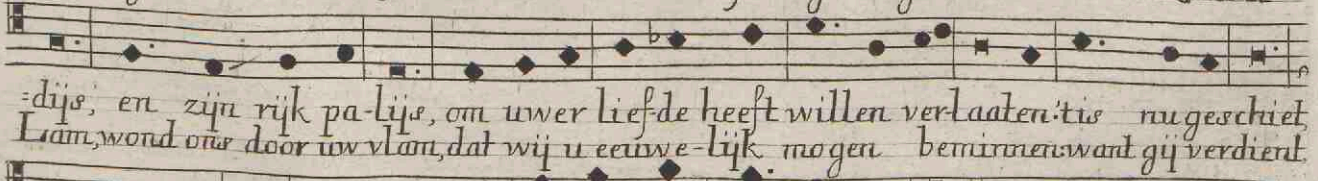 =dijs, en zijn rijk pa-lijs, om uwer lief-de heeft willen ver-laaten:'tis nu geschiet,
Lam, wond ons door uw vlam, dat wij u eeuwe-lijk mogen beminnen: want gij verdient,